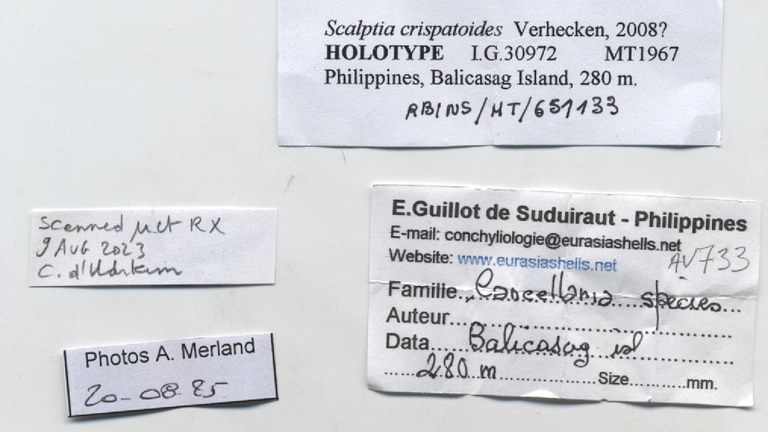 Scalptia crispatoides Verhecken, 2008?
HOLOTYPE I.G.30972 MT1967
Philippines, Balicasag Island, 280 m.
RBINS/MT/651133
Scanned µct RX
9 AUG 2023
C. d'Udekem
Photos A. Merland
20-08-25
E.Guillot de Suduiraut - Philippines
E-mail: conchyliologie@eurasiashells.net
Website: www.eurasiashells.net
AV733
Famille..Cancellaria species...
Auteur...
Data...Balicasag isl
...280 m...Size...mm.